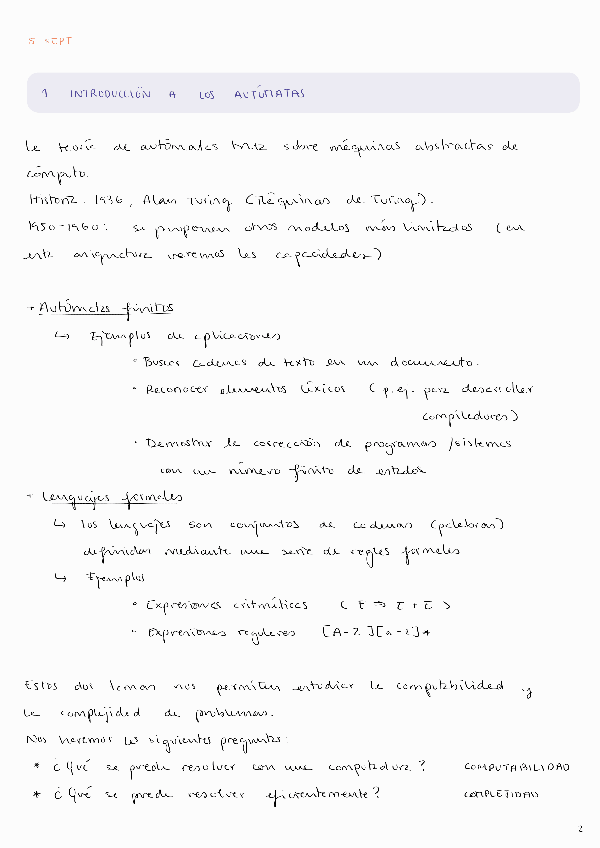 5 SEPT
1 INTRODUCCIÓN A LOS AUTÓMATAS
La teoría de autómatas trata sobre máquinas abstractas de
cómputo.
Historia. 1936, Alan Turing (Máquinas de Turing).
1950-1960: se proponen otros modelos más limitados (en
esta asignatura veremos las capacidades)
+ Autómatas finitos
↳ Ejemplos de aplicaciones
• Buscar cadenas de texto en un documento.
• Reconocer elementos léxicos (p.ej. para desarrollar
compiladores)
• Demostrar la corrección de programas /sistemas
con un número finito de estados
+ Lenguajes formales
↳ los lenguajes son conjuntos de cadenas (palabras)
definidas mediante una serie de reglas formales
↳ Ejemplos
• Expresiones aritméticas (E → E + E)
• Expresiones regulares [A-Z][a-z]*
Estos dos temas nos permiten estudiar la computabilidad y
la complejidad de problemas.
Nos haremos las siguientes preguntas:
* ¿Qué se puede resolver con una computadora? COMPUTABILIDAD
* ¿Qué se puede resolver eficientemente? COMPLEJIDAD
2